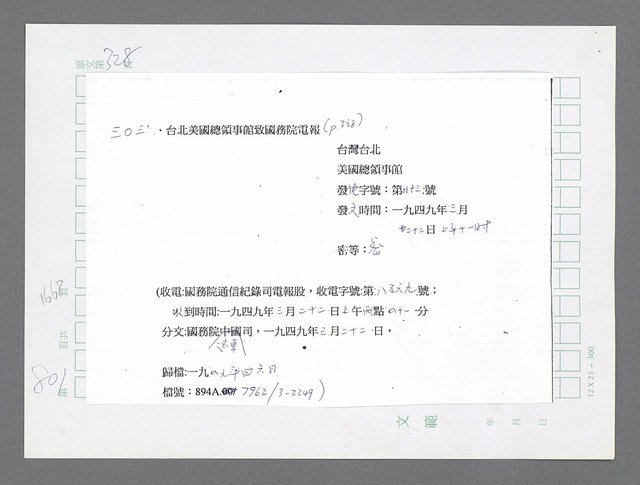 原文第328頁
三〇三、台北美國總領事館致國務院電報(p.328)
台灣台北
美國總領事館
發電字號：第八十二號
發文時間：一九四九年三月
廿二日 上午十一時
密等：密
(收電:國務院通信紀錄司電報股，收電字號:第八五六九號；
收到時間:一九四九年三月二十二日上午兩點四十一分
分文:國務院中國司，一九四九年三月二十二日，
歸檔:一九四九年四六日
檔號：894A.00 7962/3-2249)
1668
頁共
801
第
12 X 25 = 300
文範
年 月 日